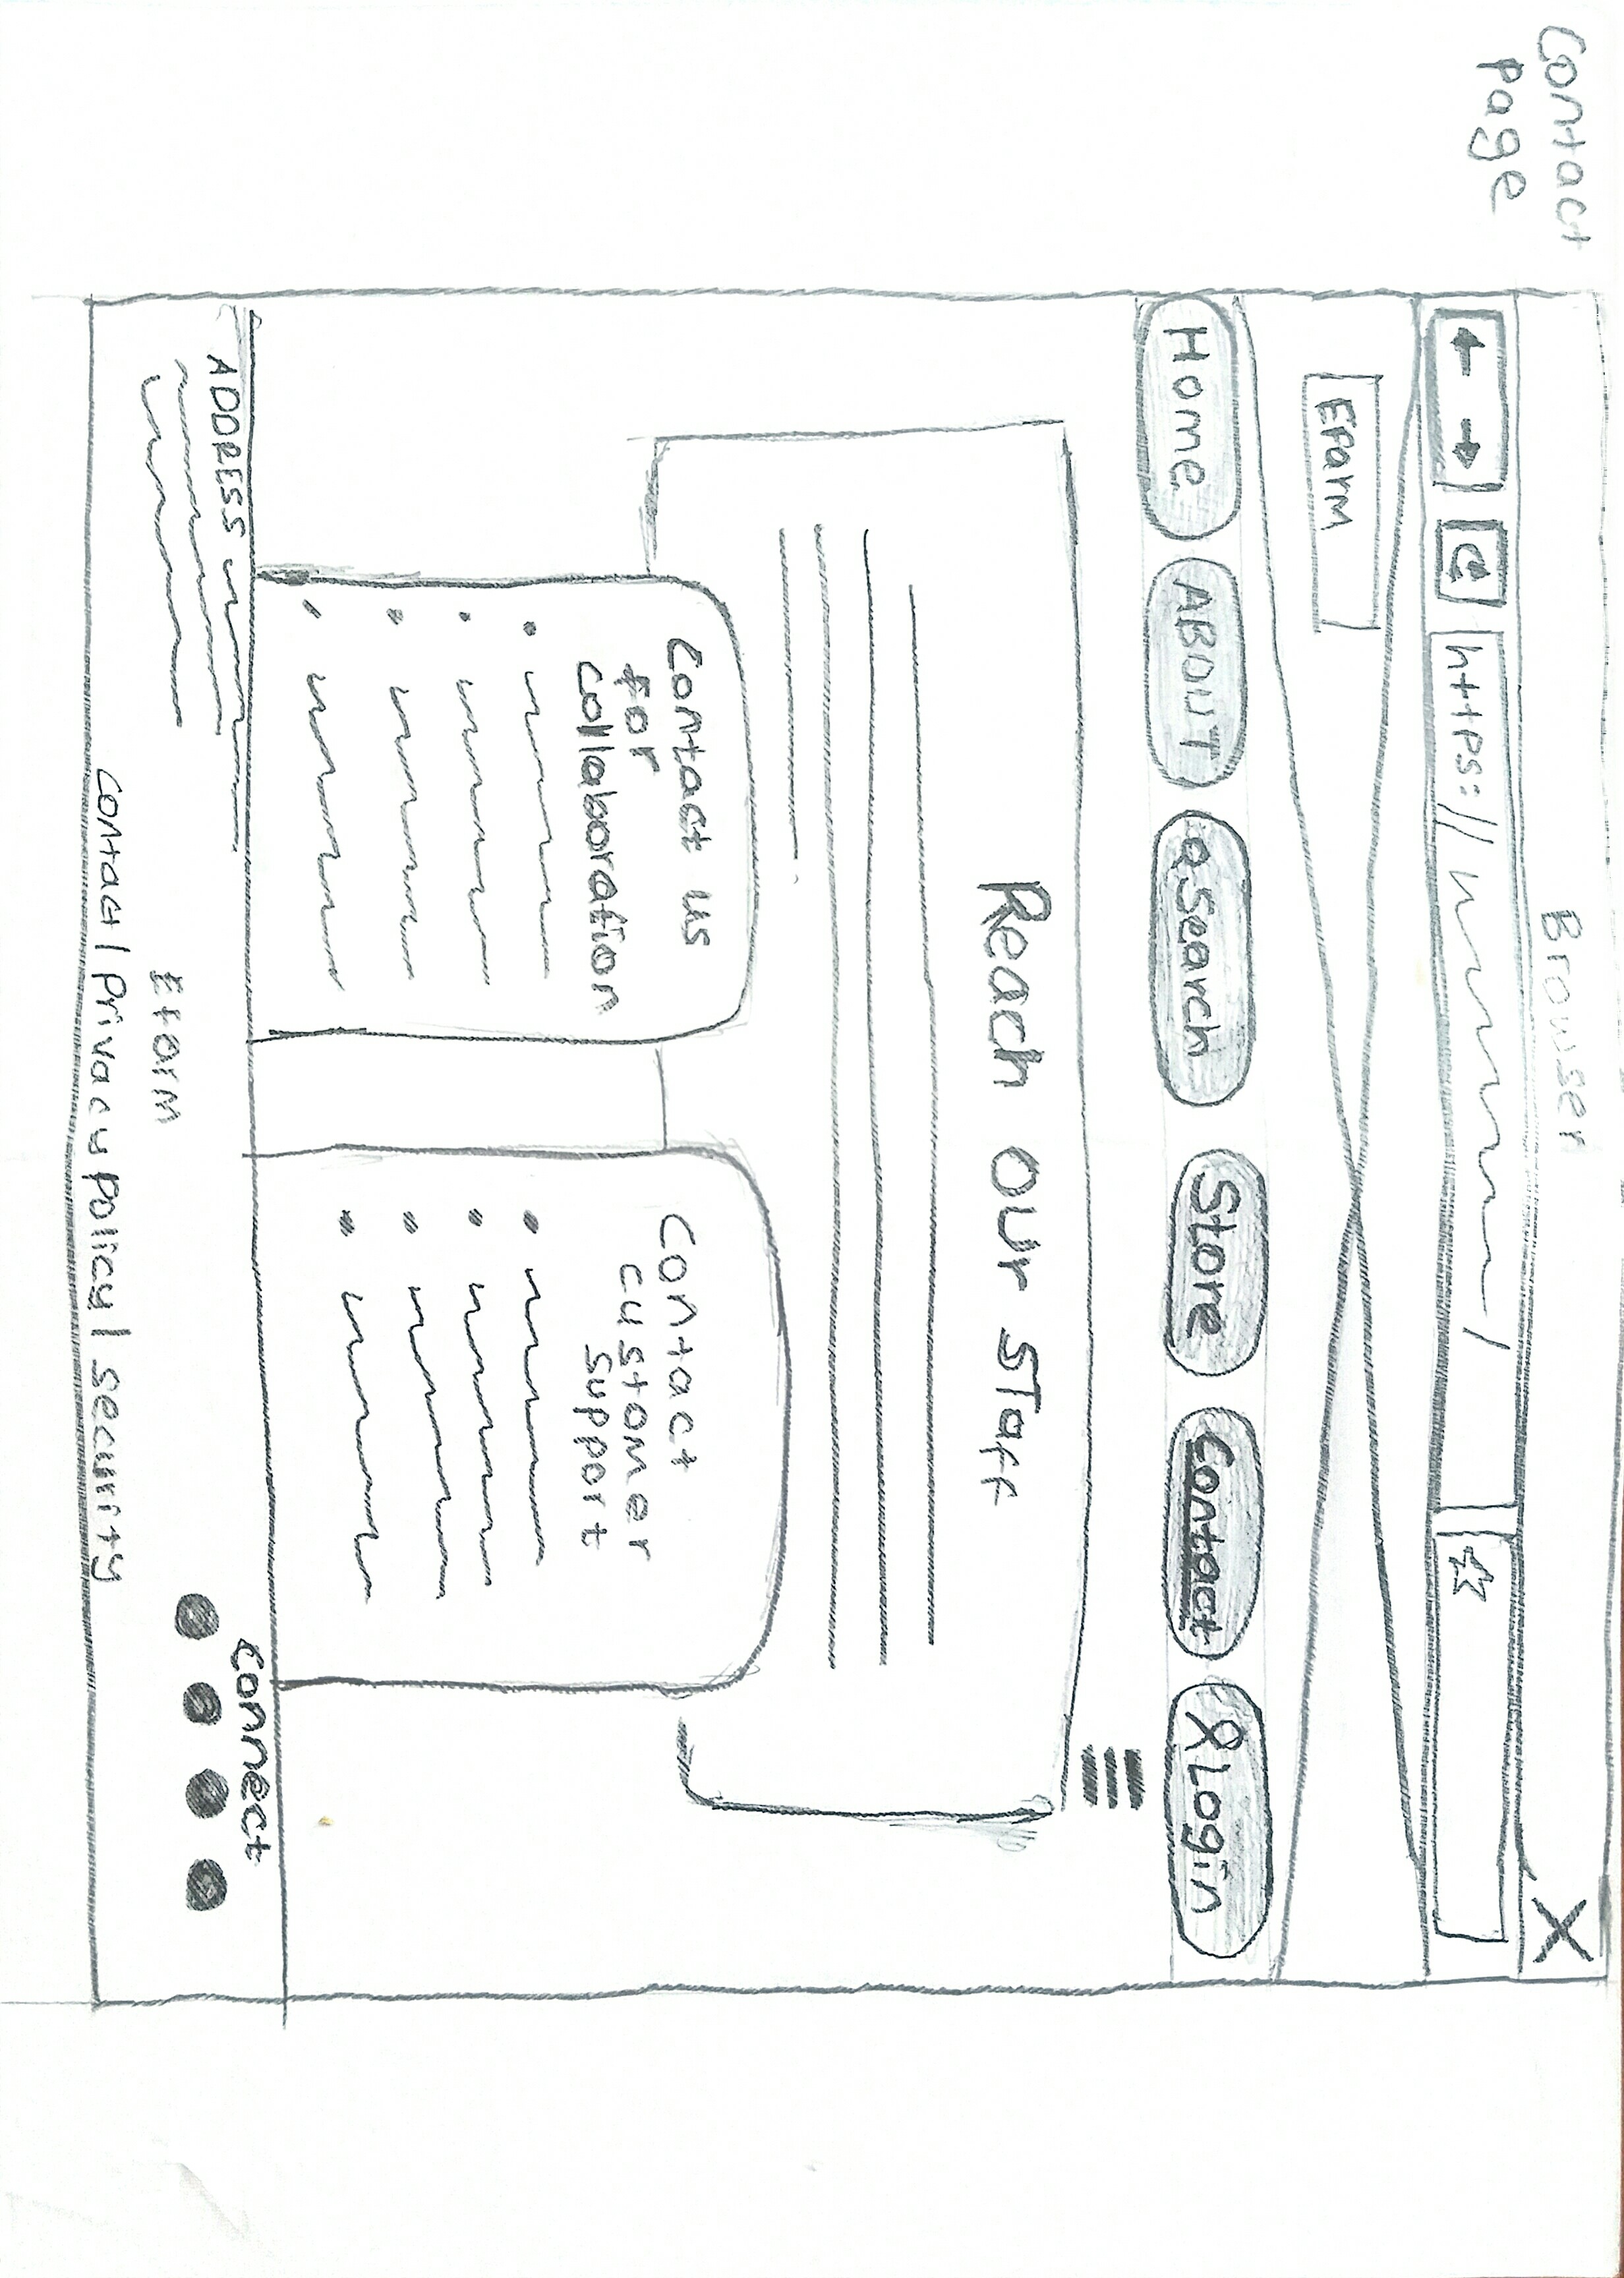 Contact
page
Browser
X
https://
Efarm
Home ABOUT Search Store Contact Login
Reach our Staff
Contact us
for
collaboration
Contact
customer
support
ADDRESS
Connect
Efarm
Contact | Privacy policy | security